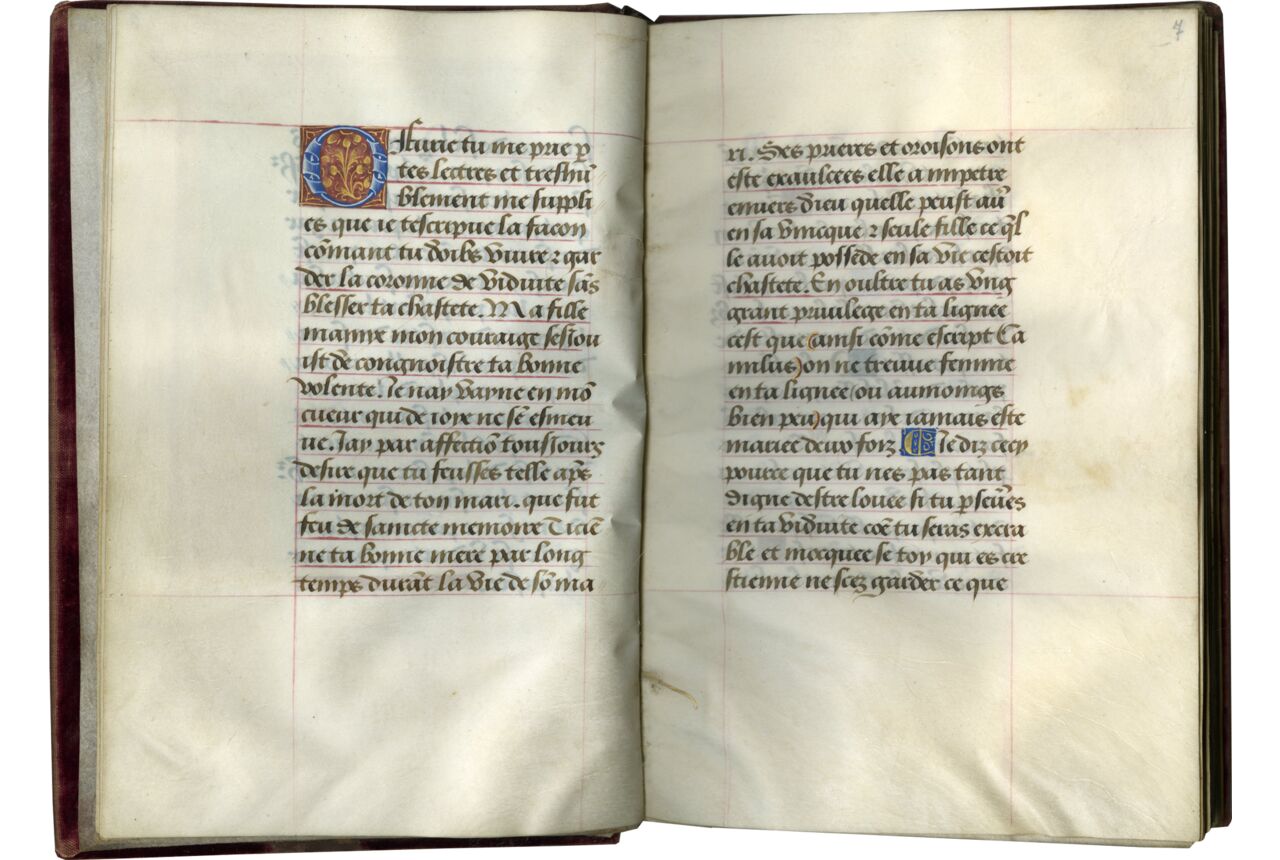 O Furie tu me prie p̱
tes lectres et treshū
blement me suppli
es que ie tescripue la facon
cōmant tu doibs viure ⁊ gar
der la coronne de viduite sās
blesser ta chastete. Ma fille
mamye mon couraige sesiou
ist de congnoistre ta bonne
volente. Ie nay vayne en mō
cueur qui de ioye ne se esmeu
ue. Iay par affectiō tousiours
desire que tu feusses telle aps̄
la mort de ton mari. que fut
feu de saincte memoire Ticiē
ne ta bonne mere par long
temps durāt la vie de sō ma
7
ri. Ses prieres et oroisons ont
este exaulcees elle a impetre
enuers dieu quelle peust au̅
en sa vnicque ⁊ seule fille ce ql̄
le auoit possede en sa vie cestoit
chastete. En oultre tu as vng
grant priuilege en ta lignee
cest que (ainsi cōme escript Ca
milus) on ne treuue femme
en ta lignee (ou aumoings
bien peu) qui aye iamais este
mariee deux foiz C Ie diz cecy
pource que tu nes pas tant
digne destre louee si tu p̱seu̅es
en ta viduite cōe tu seras execra
ble et mocquee se toy qui es cre
stienne ne scez garder ce que